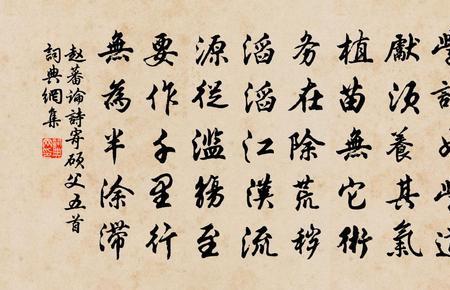 學詩如學道
獻須養其氣
植苗無它術
务在除荒穢
滔滔江漢流
源從濫觴至
要作千里行
無為半涂滯
趙蕃論詩寄碩父五首
詞典網集